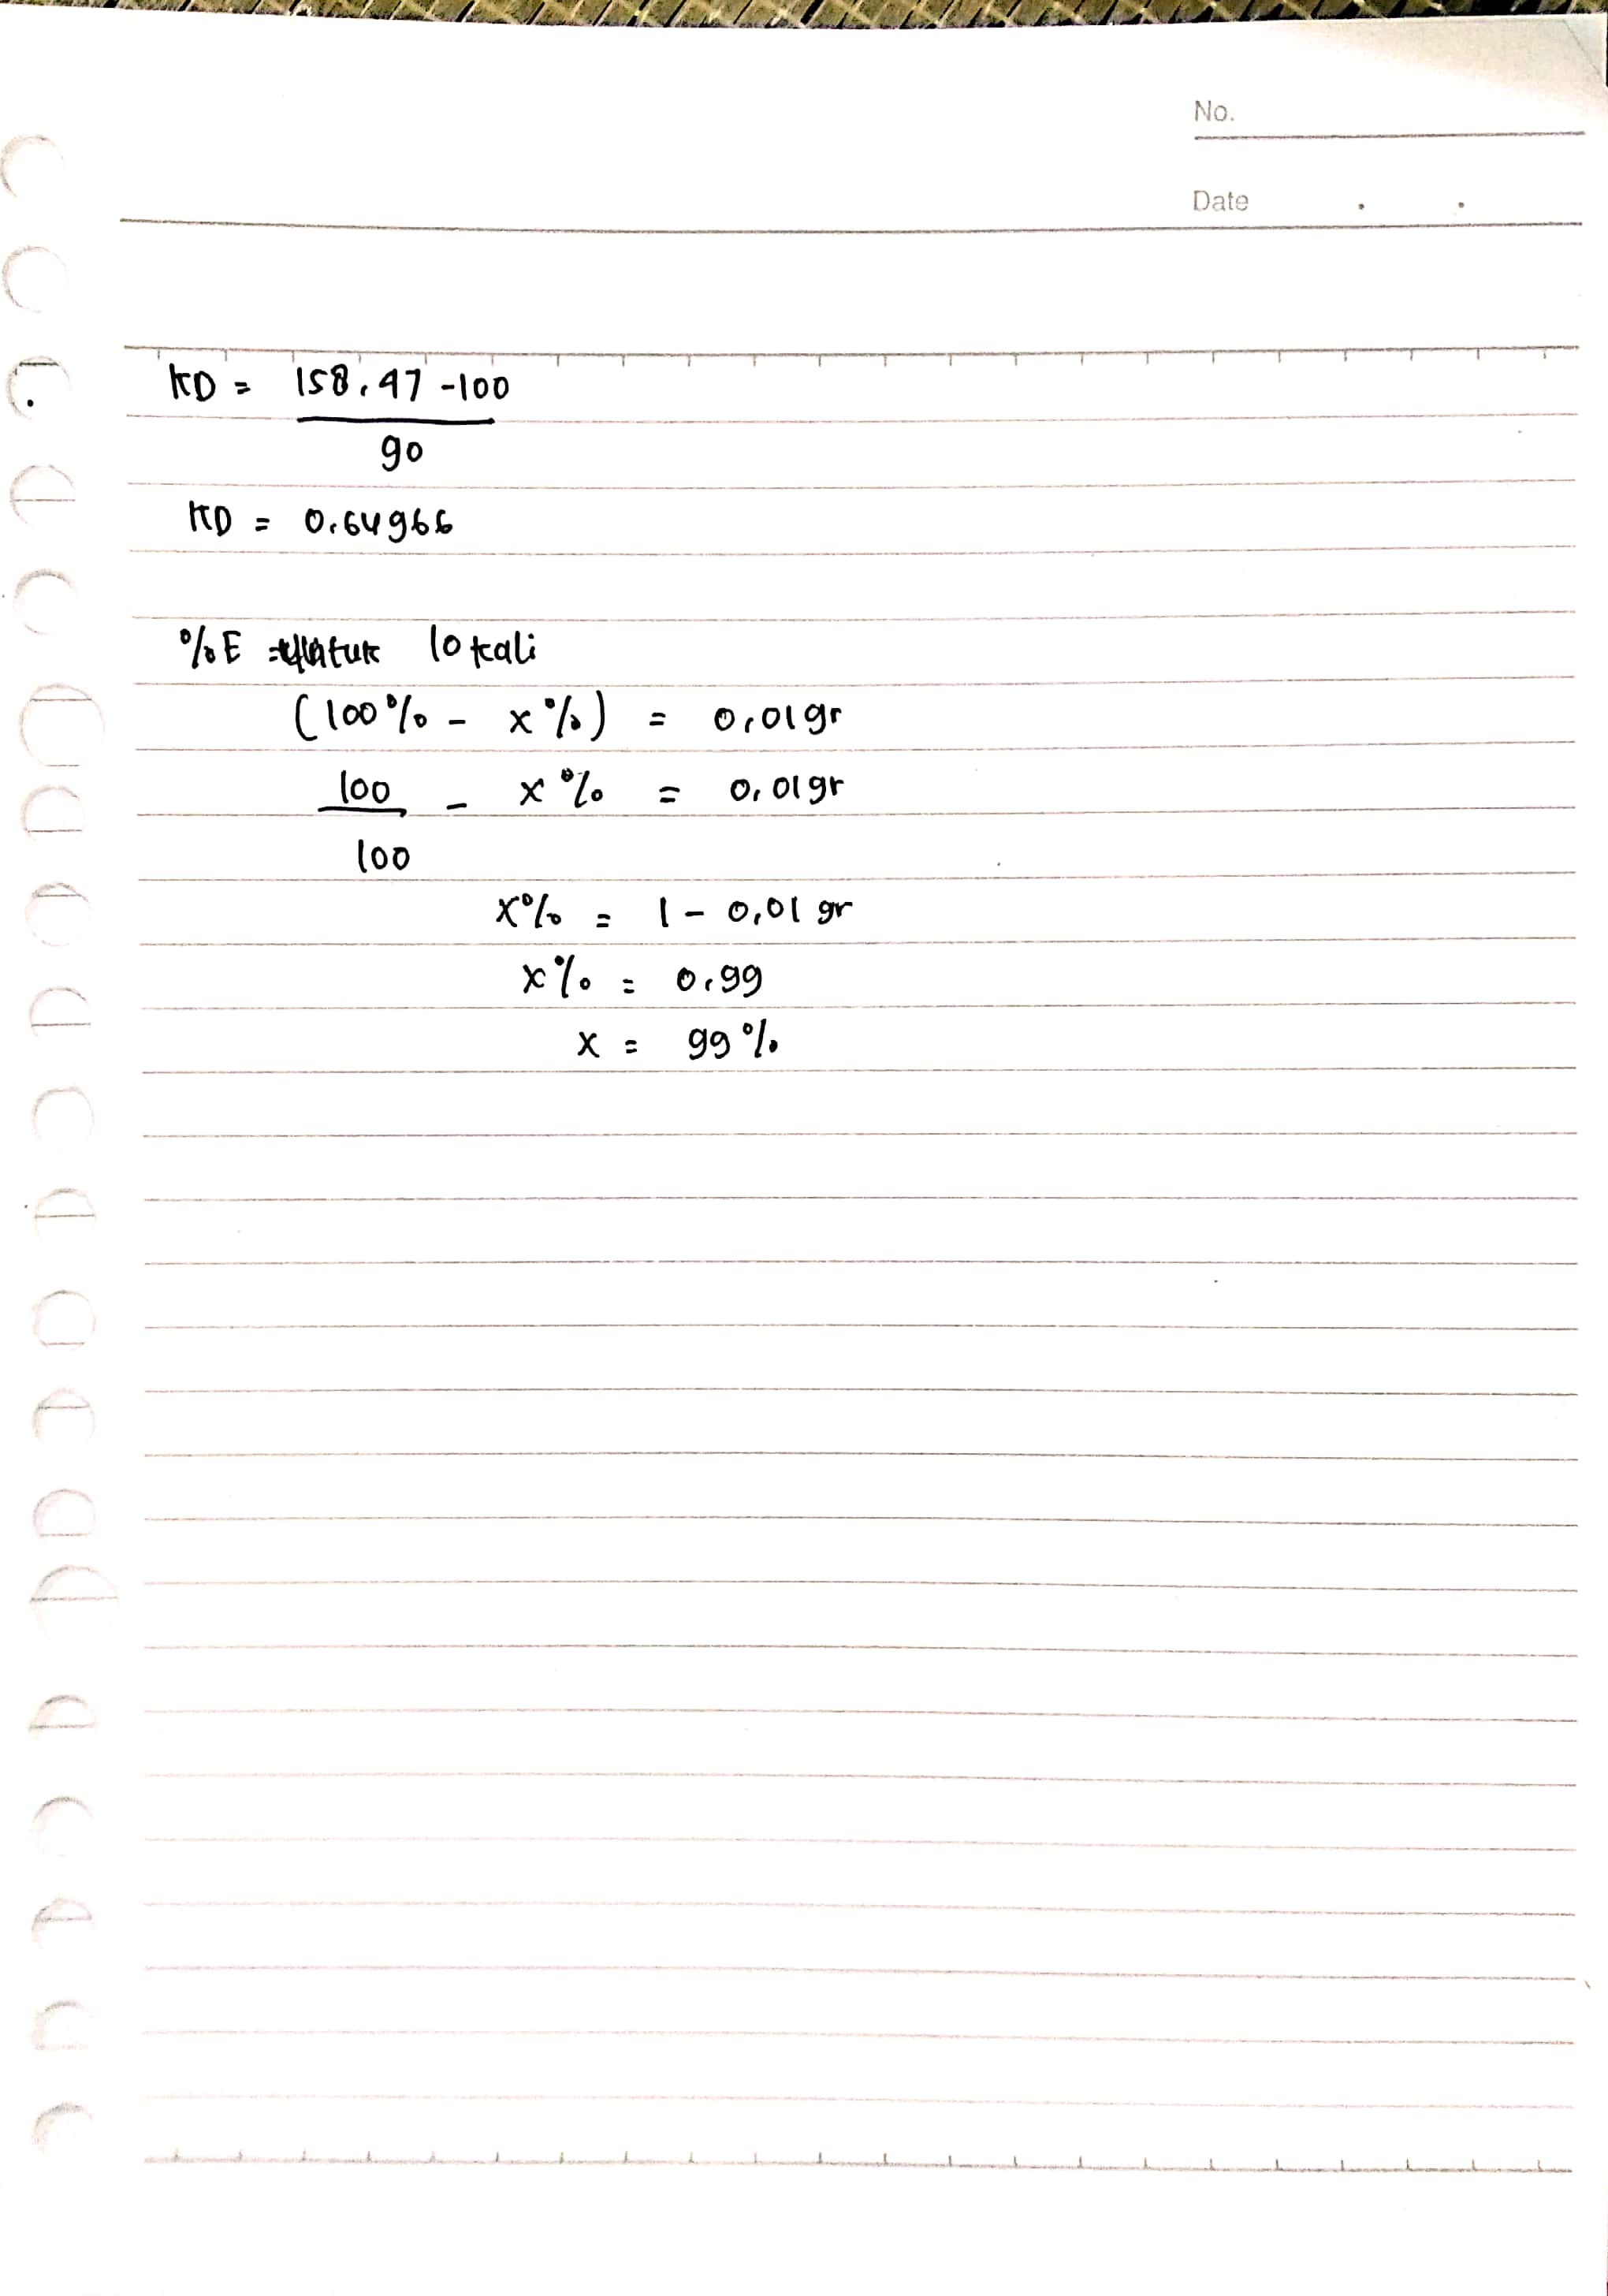 No.
Date
KD = 158,47 - 100
90
KD = 0,64966
%E untuk 10 kali
(100% - x%) = 0,01gr
100 - x% = 0,01gr
100
x% = 1 - 0,01 gr
x% = 0,99
x = 99%